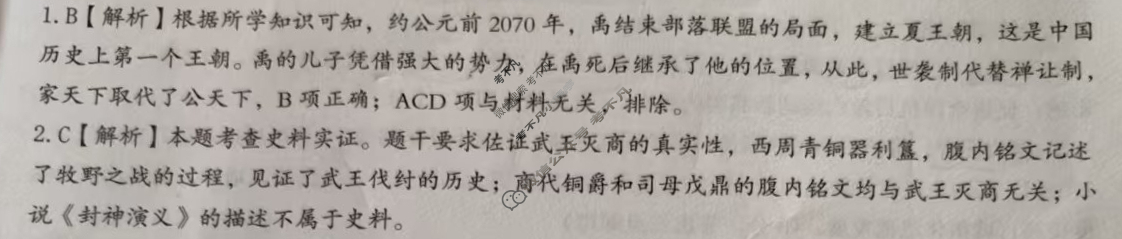 1.B【解析】根据所学知识可知，约公元前2070年，禹结束部落联盟的局面，建立夏王朝，这是中国
历史上第一个王朝。禹的儿子凭借强大的势力，在禹死后继承了他的位置，从此，世袭制代替禅让制，
家天下取代了公天下，B项正确；ACD项与材料无关，排除。
2.C【解析】本题考查史料实证。题干要求佐证武王灭商的真实性，西周青铜器利簋，腹内铭文记述
了牧野之战的过程，见证了武王伐纣的历史；商代铜爵和司母戊鼎的腹内铭文均与武王灭商无关；小
说《封神演义》的描述不属于史料。